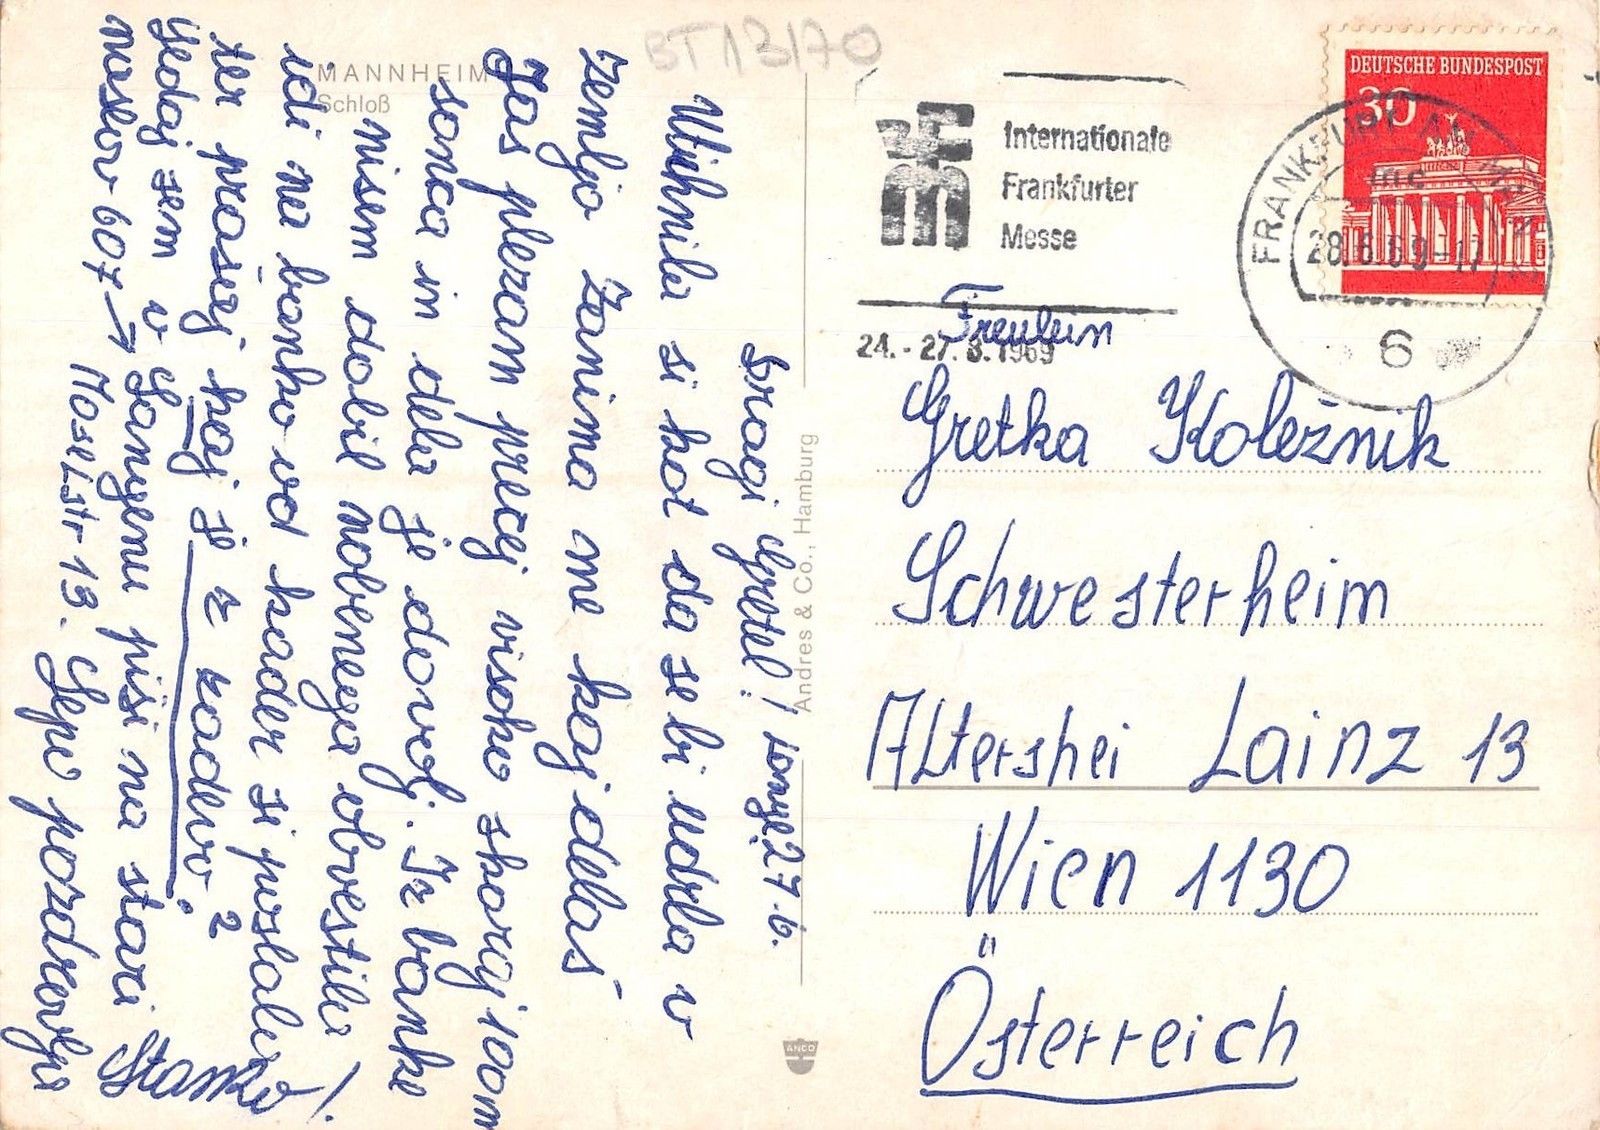 BT 13/70
MANNHEIM
Schloß
Dragi Gretel! 27.6.
Utihnila si kot da se bi udrla v
zemljo zanima me kaj delaš
Jas plezam precej visoko skoraj 100m
sonca in dela je dovolj. Iz banke
nisem dobil nobenega obvestila
idi na banko od kader si poslala!
ter prosiej kaj je z zadevo?
Sedaj sem v piši na stari
naslov 607
Moselstr 13. Lepo pozdravlja
Stanko
Andres & Co., Hamburg
ANCO
Internationale
Frankfurter
Messe
24. - 27. 8. 1969
DEUTSCHE BUNDESPOST
30
FRANKFURT AM MAIN
28.6.69-17
6
Freulein
Gretka Koležnik
Schwesterheim
Altershei Lainz 13
Wien 1130
Österreich